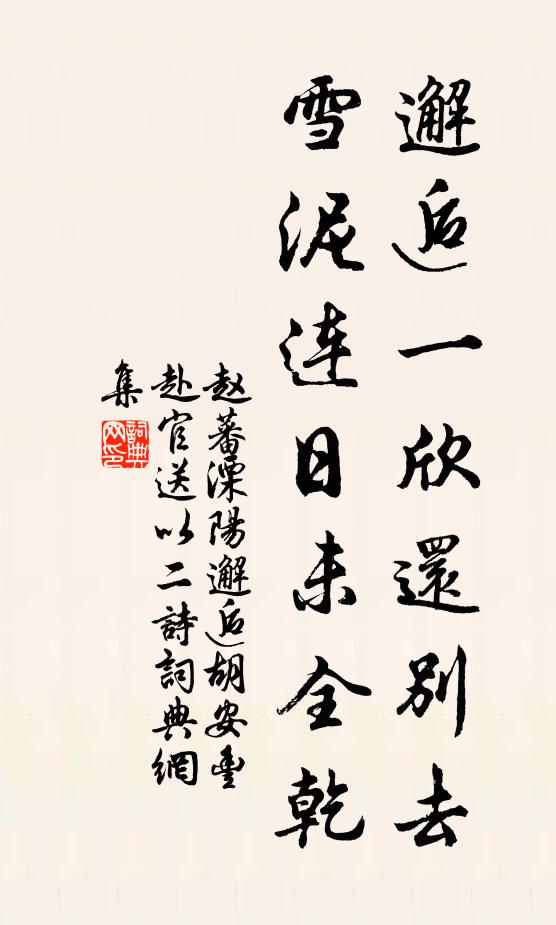 邂逅一欣還別去
雪泥連日未全乾
赵蕃溧陽邂逅胡安豊
赴官送以二詩詞典網
集
詞典网印